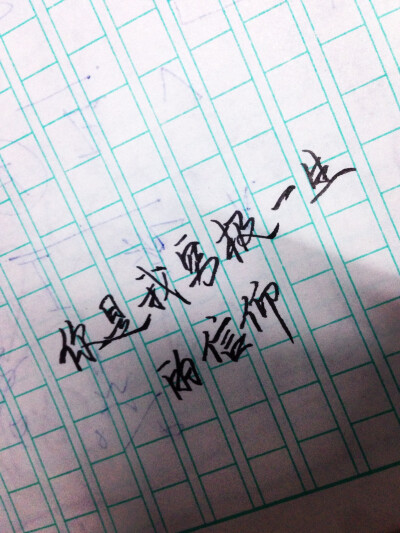 你是我穷极一生
的信仰